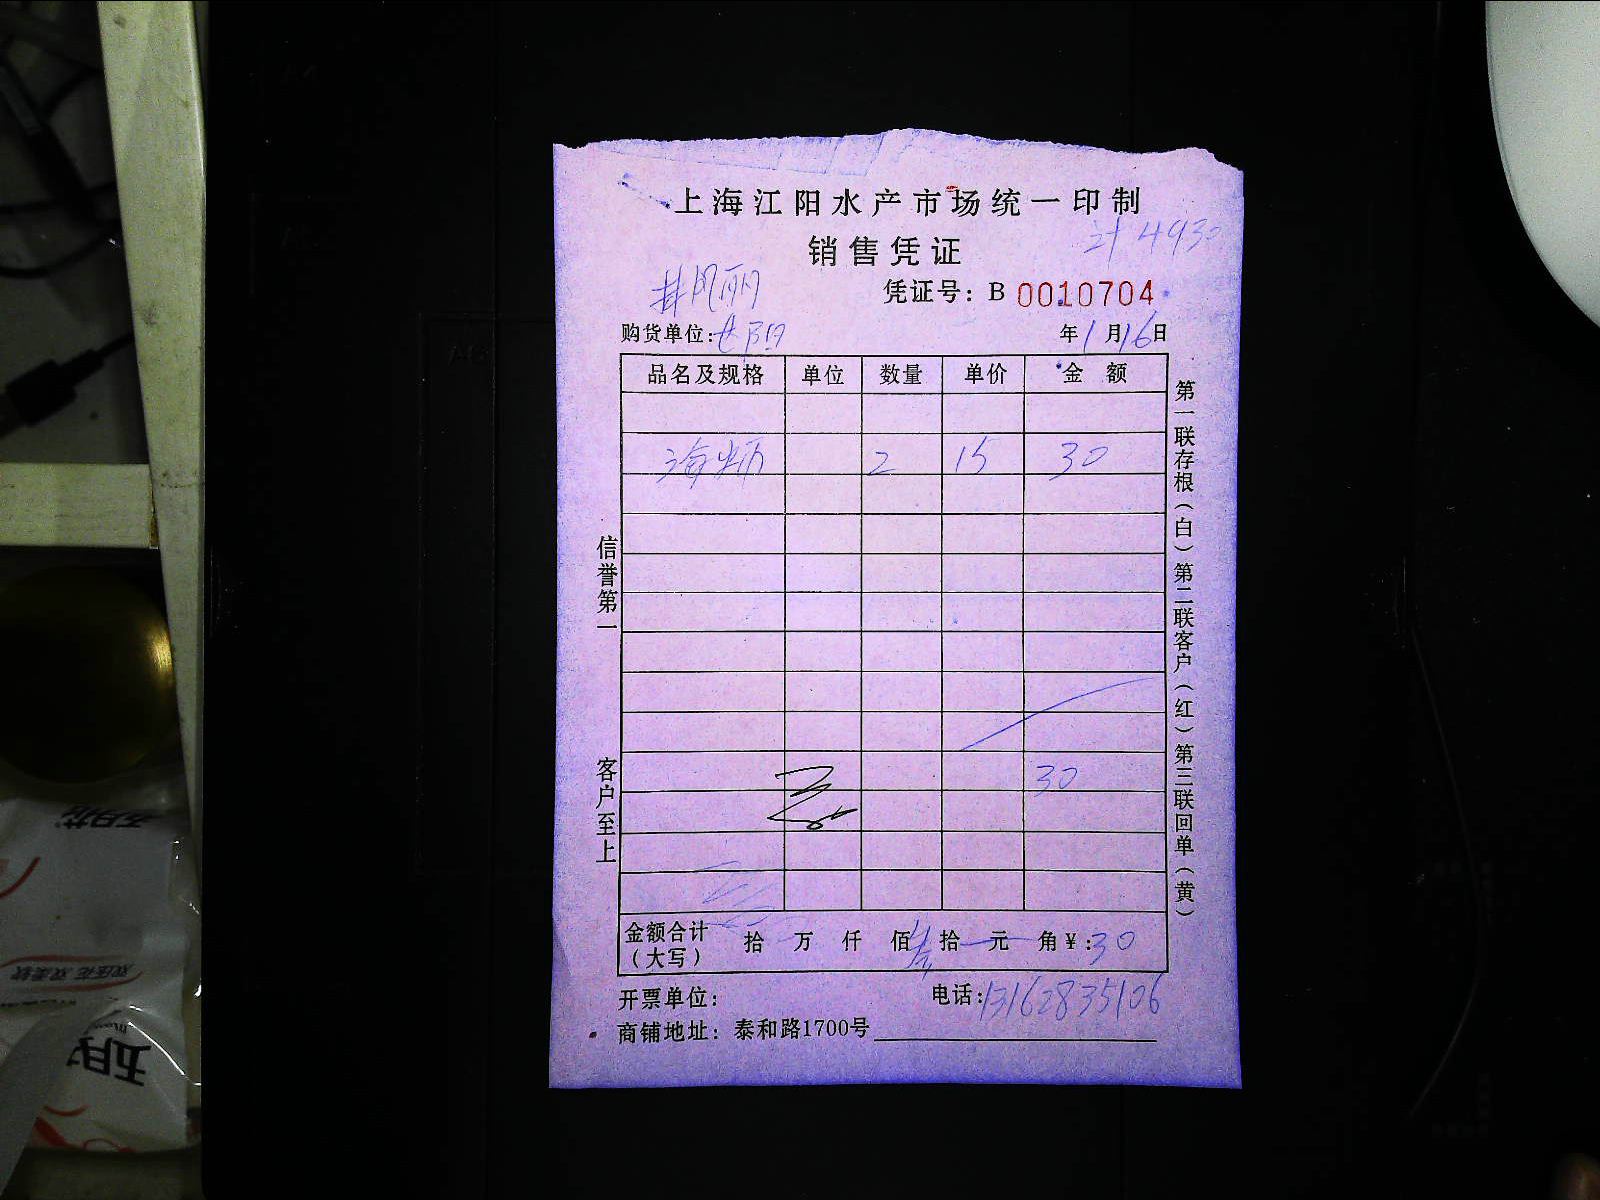 上海江阳水产市场统一印制
销售凭证
计4930
凭证号：B 0010704
购货单位：
年1月16日
品名及规格 单位 数量 单价 金额
海蛎 2 15 30
30
金额合计（大写） 拾 万 仟 佰 叁拾 元 角￥:30
开票单位：
电话：13162835106
商铺地址：泰和路1700号
信誉第一
客户至上
第一联存根（白）第二联客户（红）第三联回单（黄）